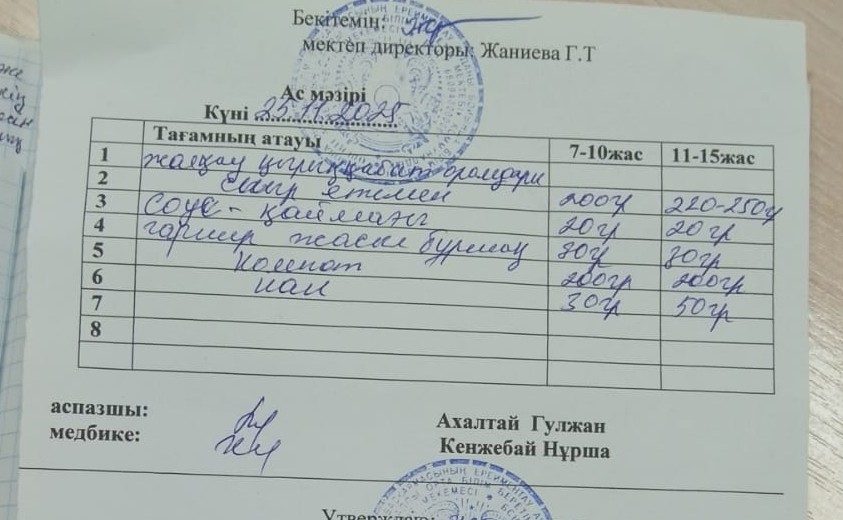 Бекітемін:
мектеп директоры: Жаниева Г.Т
Ас мәзірі
Күні 25.11.2025
Тағамның атауы 7-10жас 11-15жас
1 жалқау қырыққабат орамдары
2 сиыр етімен 200гр 220-250гр
3 Соус - қаймағы 20гр 20гр
4 гарнир жасыл бұршақ 30гр 30гр
5 Компот 200гр 200гр
6 нан 30гр 50гр
7
8
аспазшы: Ахалтай Гулжан
медбике: Кенжебай Нұрша
Утверждаю: